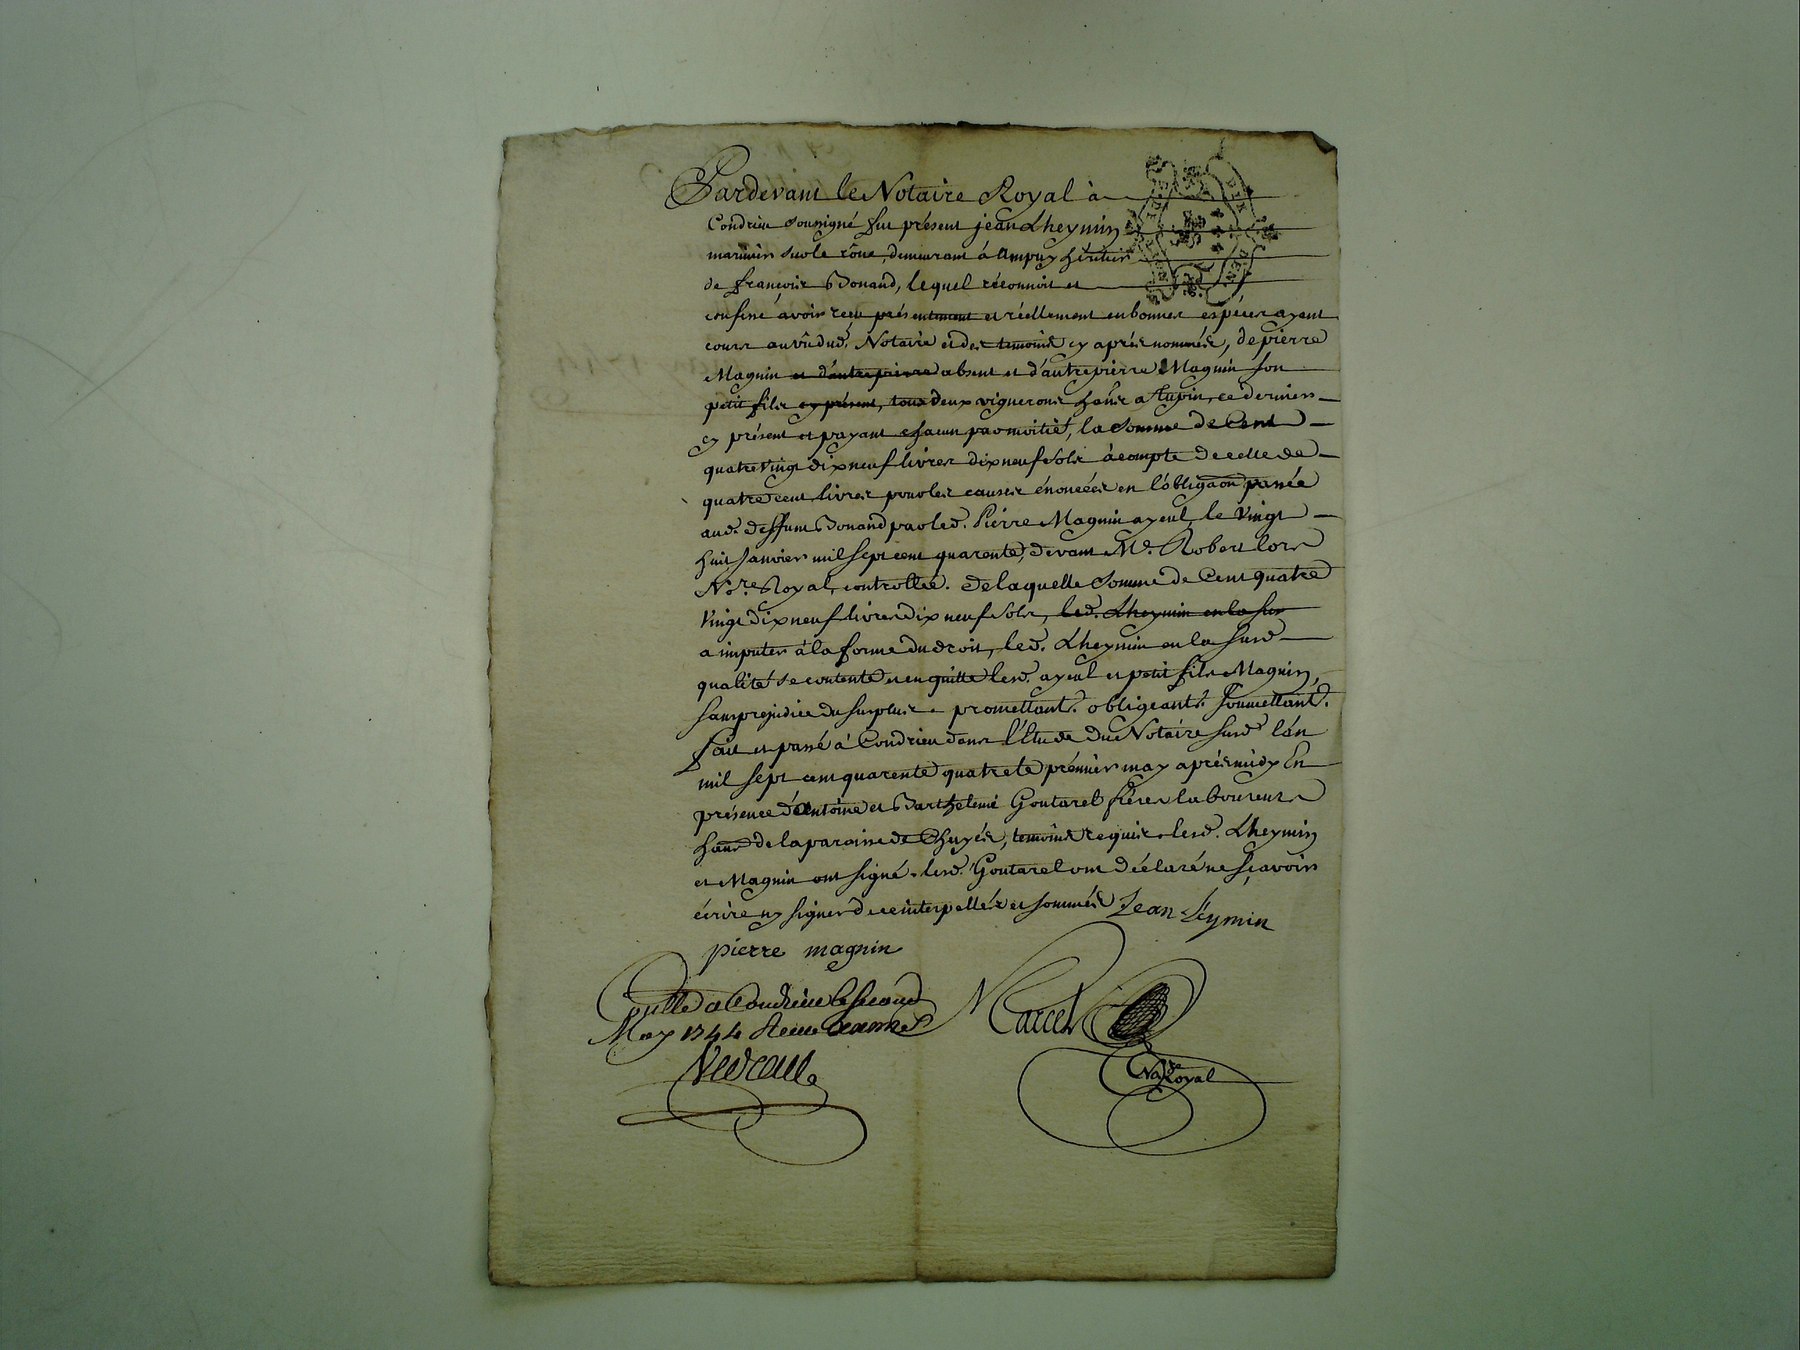 Pardevant le Notaire Royal à
Condrieu soussigné fut présent jean Lheymin
marinier sur le rône, demeurant à Ampuy héritier
de françois Bonand, lequel réconnoit et
confessé avoir reçu présentement et réellement en bonnes espéces ayant
cours au vû dud. Notaire et des temoins cy aprés nommés, de pierre
Magnin et d'autre pierre absent et d'autre pierre Magnin son
petit fils cy présent, tous deux vignerons hañs a Tupin, ce dernier
cy présent et payant chacun par moitié, la somme de Cent
quatre vingt dix neuf livres dix neuf sols à compte de celle de
quatre cent livres pour les causes énoncées en l'obligaon passée
aud. deffunt Bonand par led. Pierre Magnin ayeul le vingt
huit janvier mil sept cent quarente, devant Me. Robert lors
Nore. Royal, controllée. de laquelle somme de Cent quatre
vingt dix neuf livres dix neuf sols, led. Lheymin en la sus
a imputer à la forme du droit, led. Lheymin en la susd.
qualité se contente et en quitte lesd. ayeul et petit fils Magnin,
sans prejudice du surplus. promettant. obligeant. soumettant.
fait et passé à Condrieu dans l'Etude du Notaire susd. l'an
mil sept cent quarente quatre le prémier may aprés midy En
présence d'Antoine et Barthelemi Goutarel fréres laboureurs
hañs de la paroisse de Chuyés, temoins requis. lesd. Lheymin
et Magnin ont signé. lesd. Goutarel ont déclaré ne sçavoir
écrire ny signer de ce interpellés et sommés Jean Leymin
pierre magnin
Coñllé a Condrieu le second
May 1744 Receu
Marcel
Nore Royal